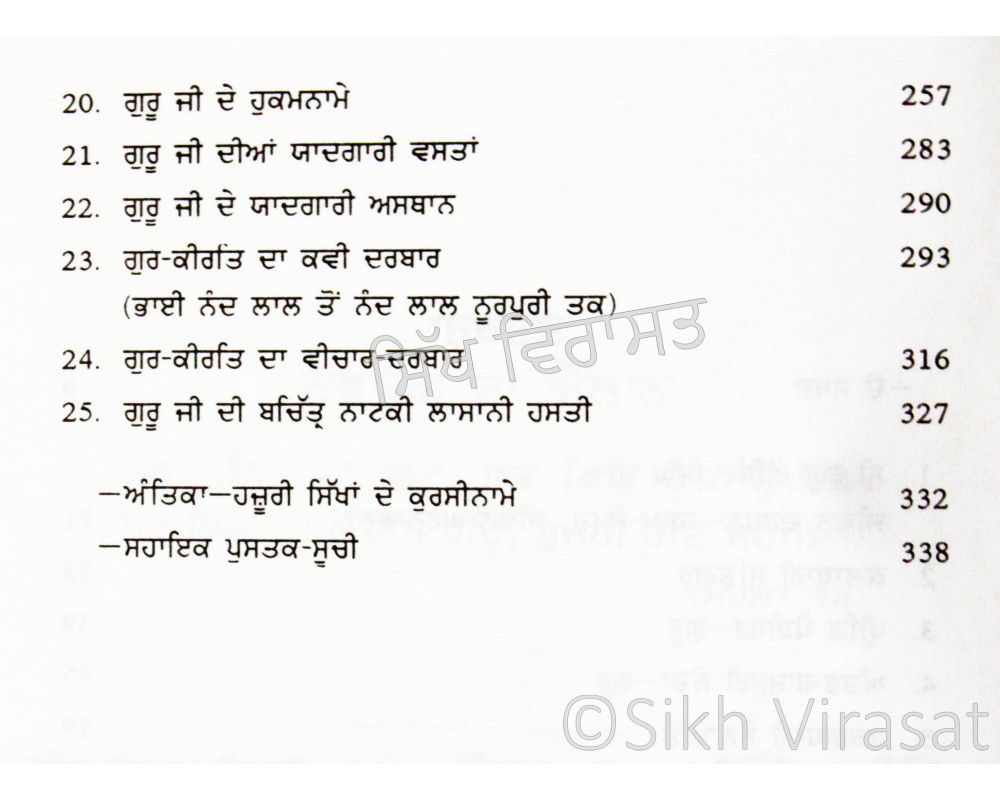 20. ਗੁਰੂ ਜੀ ਦੇ ਹੁਕਮਨਾਮੇ 257
21. ਗੁਰੂ ਜੀ ਦੀਆਂ ਯਾਦਗਾਰੀ ਵਸਤਾਂ 283
22. ਗੁਰੂ ਜੀ ਦੇ ਯਾਦਗਾਰੀ ਅਸਥਾਨ 290
23. ਗੁਰ-ਕੀਰਤਿ ਦਾ ਕਵੀ ਦਰਬਾਰ 293
(ਭਾਈ ਨੰਦ ਲਾਲ ਤੋਂ ਨੰਦ ਲਾਲ ਨੂਰਪੁਰੀ ਤਕ)
ਸਿੱਖ ਵਿਰਾਸਤ
24. ਗੁਰ-ਕੀਰਤਿ ਦਾ ਵੀਚਾਰ-ਦਰਬਾਰ 316
25. ਗੁਰੂ ਜੀ ਦੀ ਬਚਿੱਤ੍ਰ ਨਾਟਕੀ ਲਾਸਾਨੀ ਹਸਤੀ 327
—ਅੰਤਿਕਾ—ਹਜ਼ੂਰੀ ਸਿੱਖਾਂ ਦੇ ਕੁਰਸੀਨਾਮੇ 332
—ਸਹਾਇਕ ਪੁਸਤਕ-ਸੂਚੀ 338
©Sikh Virasat